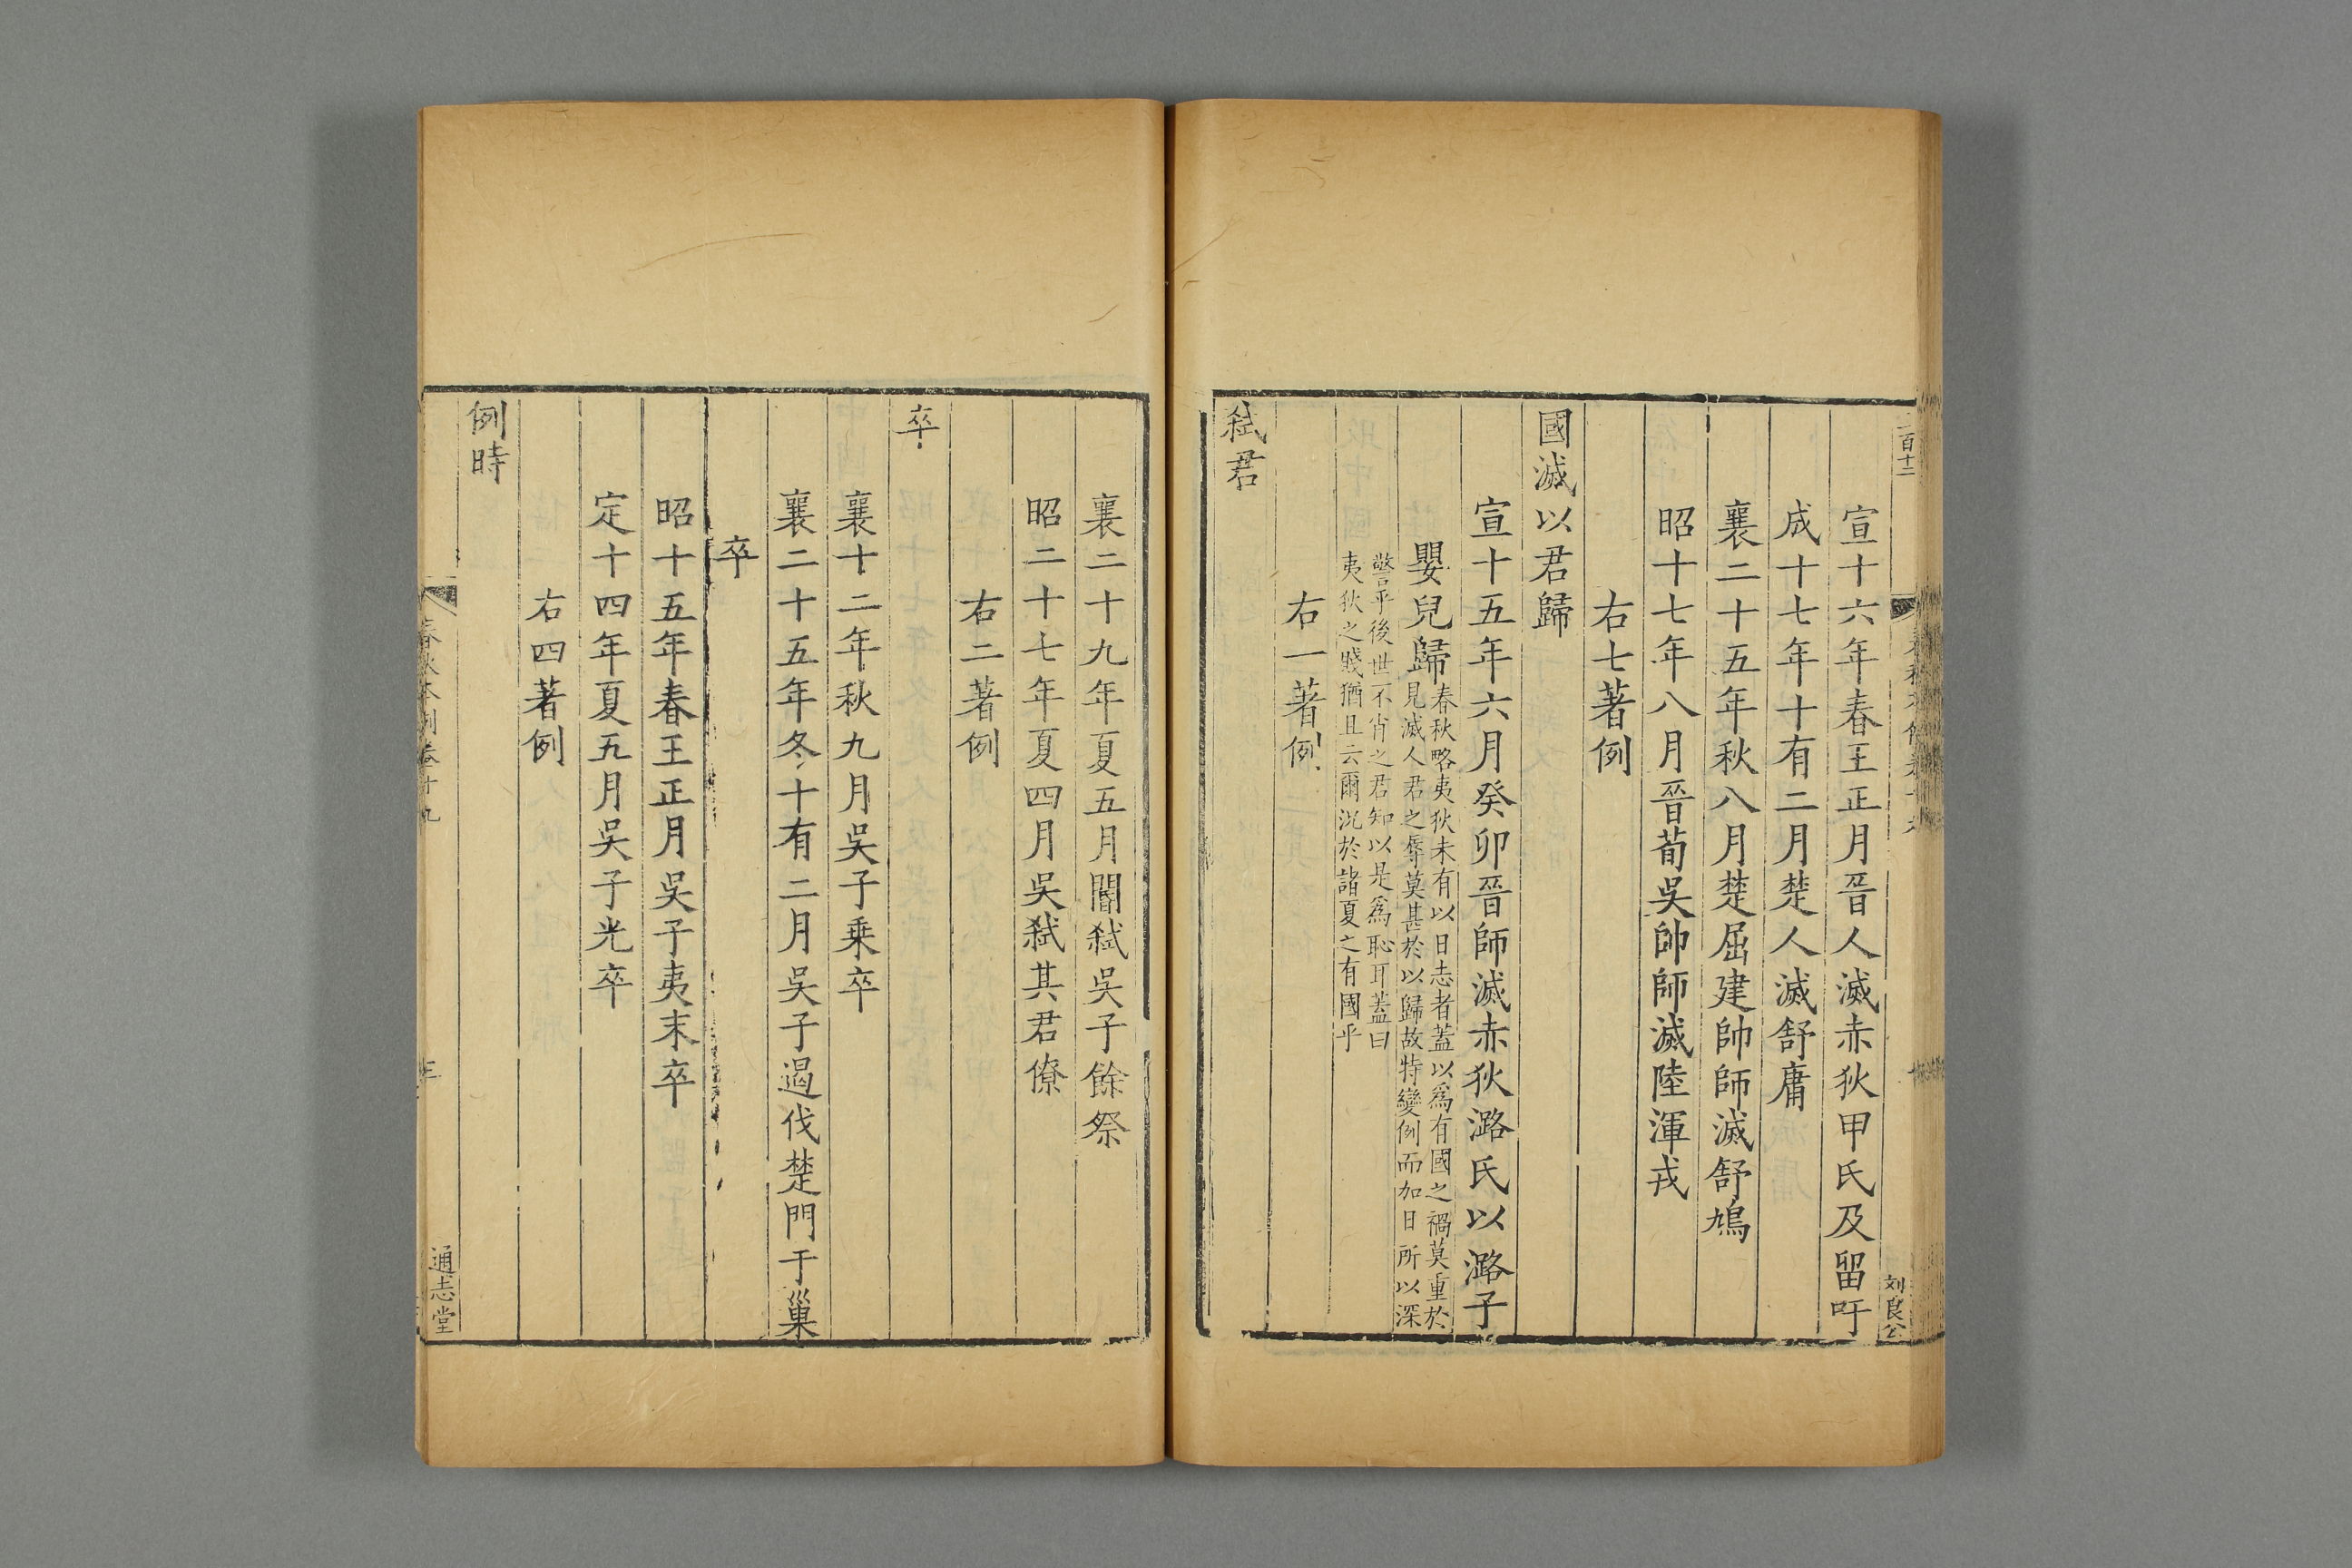 宣十六年春王正月晉人滅赤狄甲氏及留吁
成十七年十有二月楚人滅舒庸
襄二十五年秋八月楚屈建帥師滅舒鳩
昭十七年八月晉荀吳帥師滅陸渾戎
右七著例
國滅以君歸
宣十五年六月癸卯晉師滅赤狄潞氏以潞子
嬰兒歸
春秋略夷狄未有以日志者蓋以為有國之禍莫重於
見滅人君之辱莫甚於以歸故特變例而加日所以深
警乎後世不肖之君知以是為恥耳蓋曰
夷狄之賤猶且云爾況於諸夏之有國乎
右一著例
弒君
劉良公
襄二十九年夏五月閽弒吳子餘祭
昭二十七年夏四月吳弒其君僚
右二著例
卒
襄十二年秋九月吳子乗卒
襄二十五年冬十有二月吳子遏伐楚門于巢
卒
昭十五年春王正月吳子夷末卒
定十四年夏五月吳子光卒
右四著例
例時
春秋本例卷十九
三
通志堂